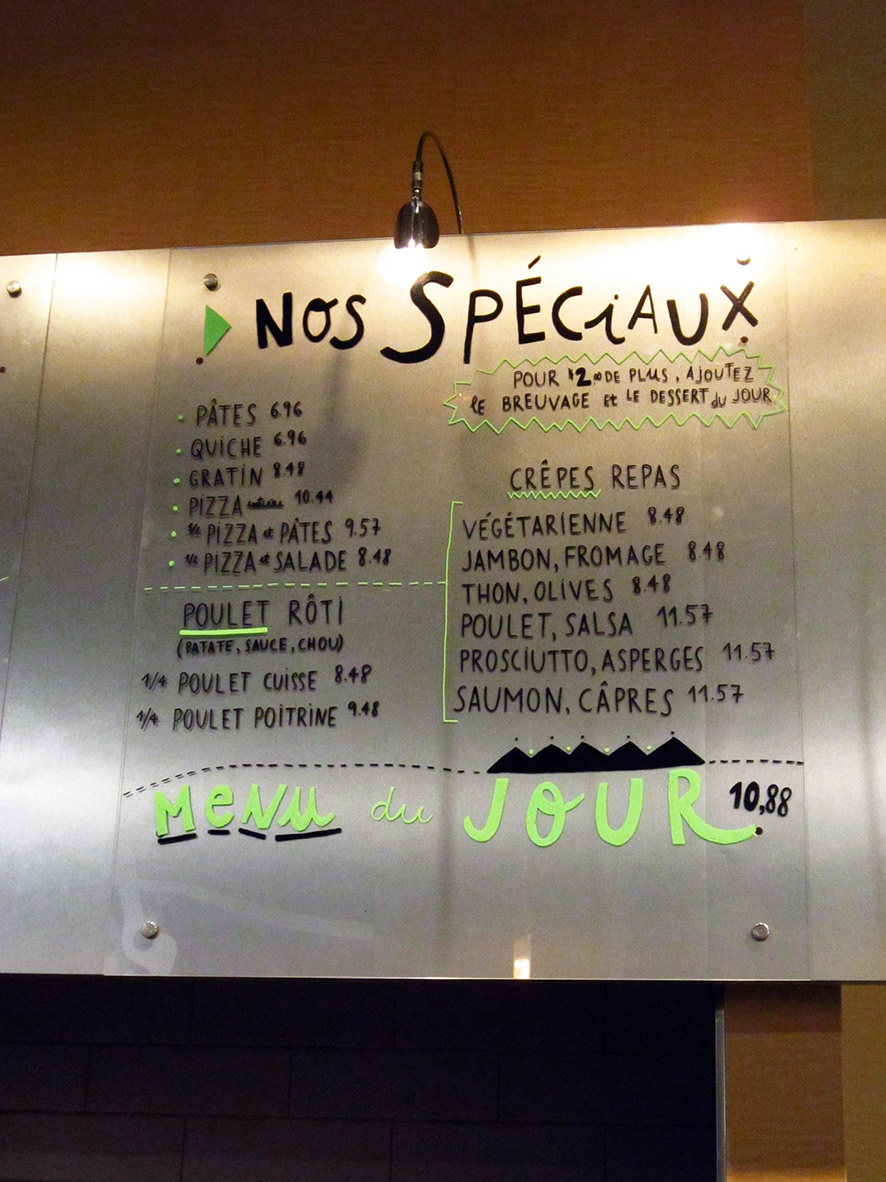 NOS SPÉCIAUX
POUR $2.00 DE PLUS, AJOUTEZ
le BREUVAGE et LE DESSERT du JOUR
PÂTES 6.96
QUICHE 6.96
GRATIN 8.48
PIZZA entière 10.44
1/2 PIZZA et PÂTES 9.57
1/2 PIZZA et SALADE 8.48
POULET RÔTI
(PATATE, SAUCE, CHOU)
1/4 POULET CUISSE 8.48
1/4 POULET POITRINE 9.48
CRÊPES REPAS
VÉGÉTARIENNE 8.48
JAMBON, FROMAGE 8.48
THON, OLIVES 8.48
POULET, SALSA 11.57
PROSCIUTTO, ASPERGES 11.57
SAUMON, CÂPRES 11.57
MeNu du JOUR 10,88